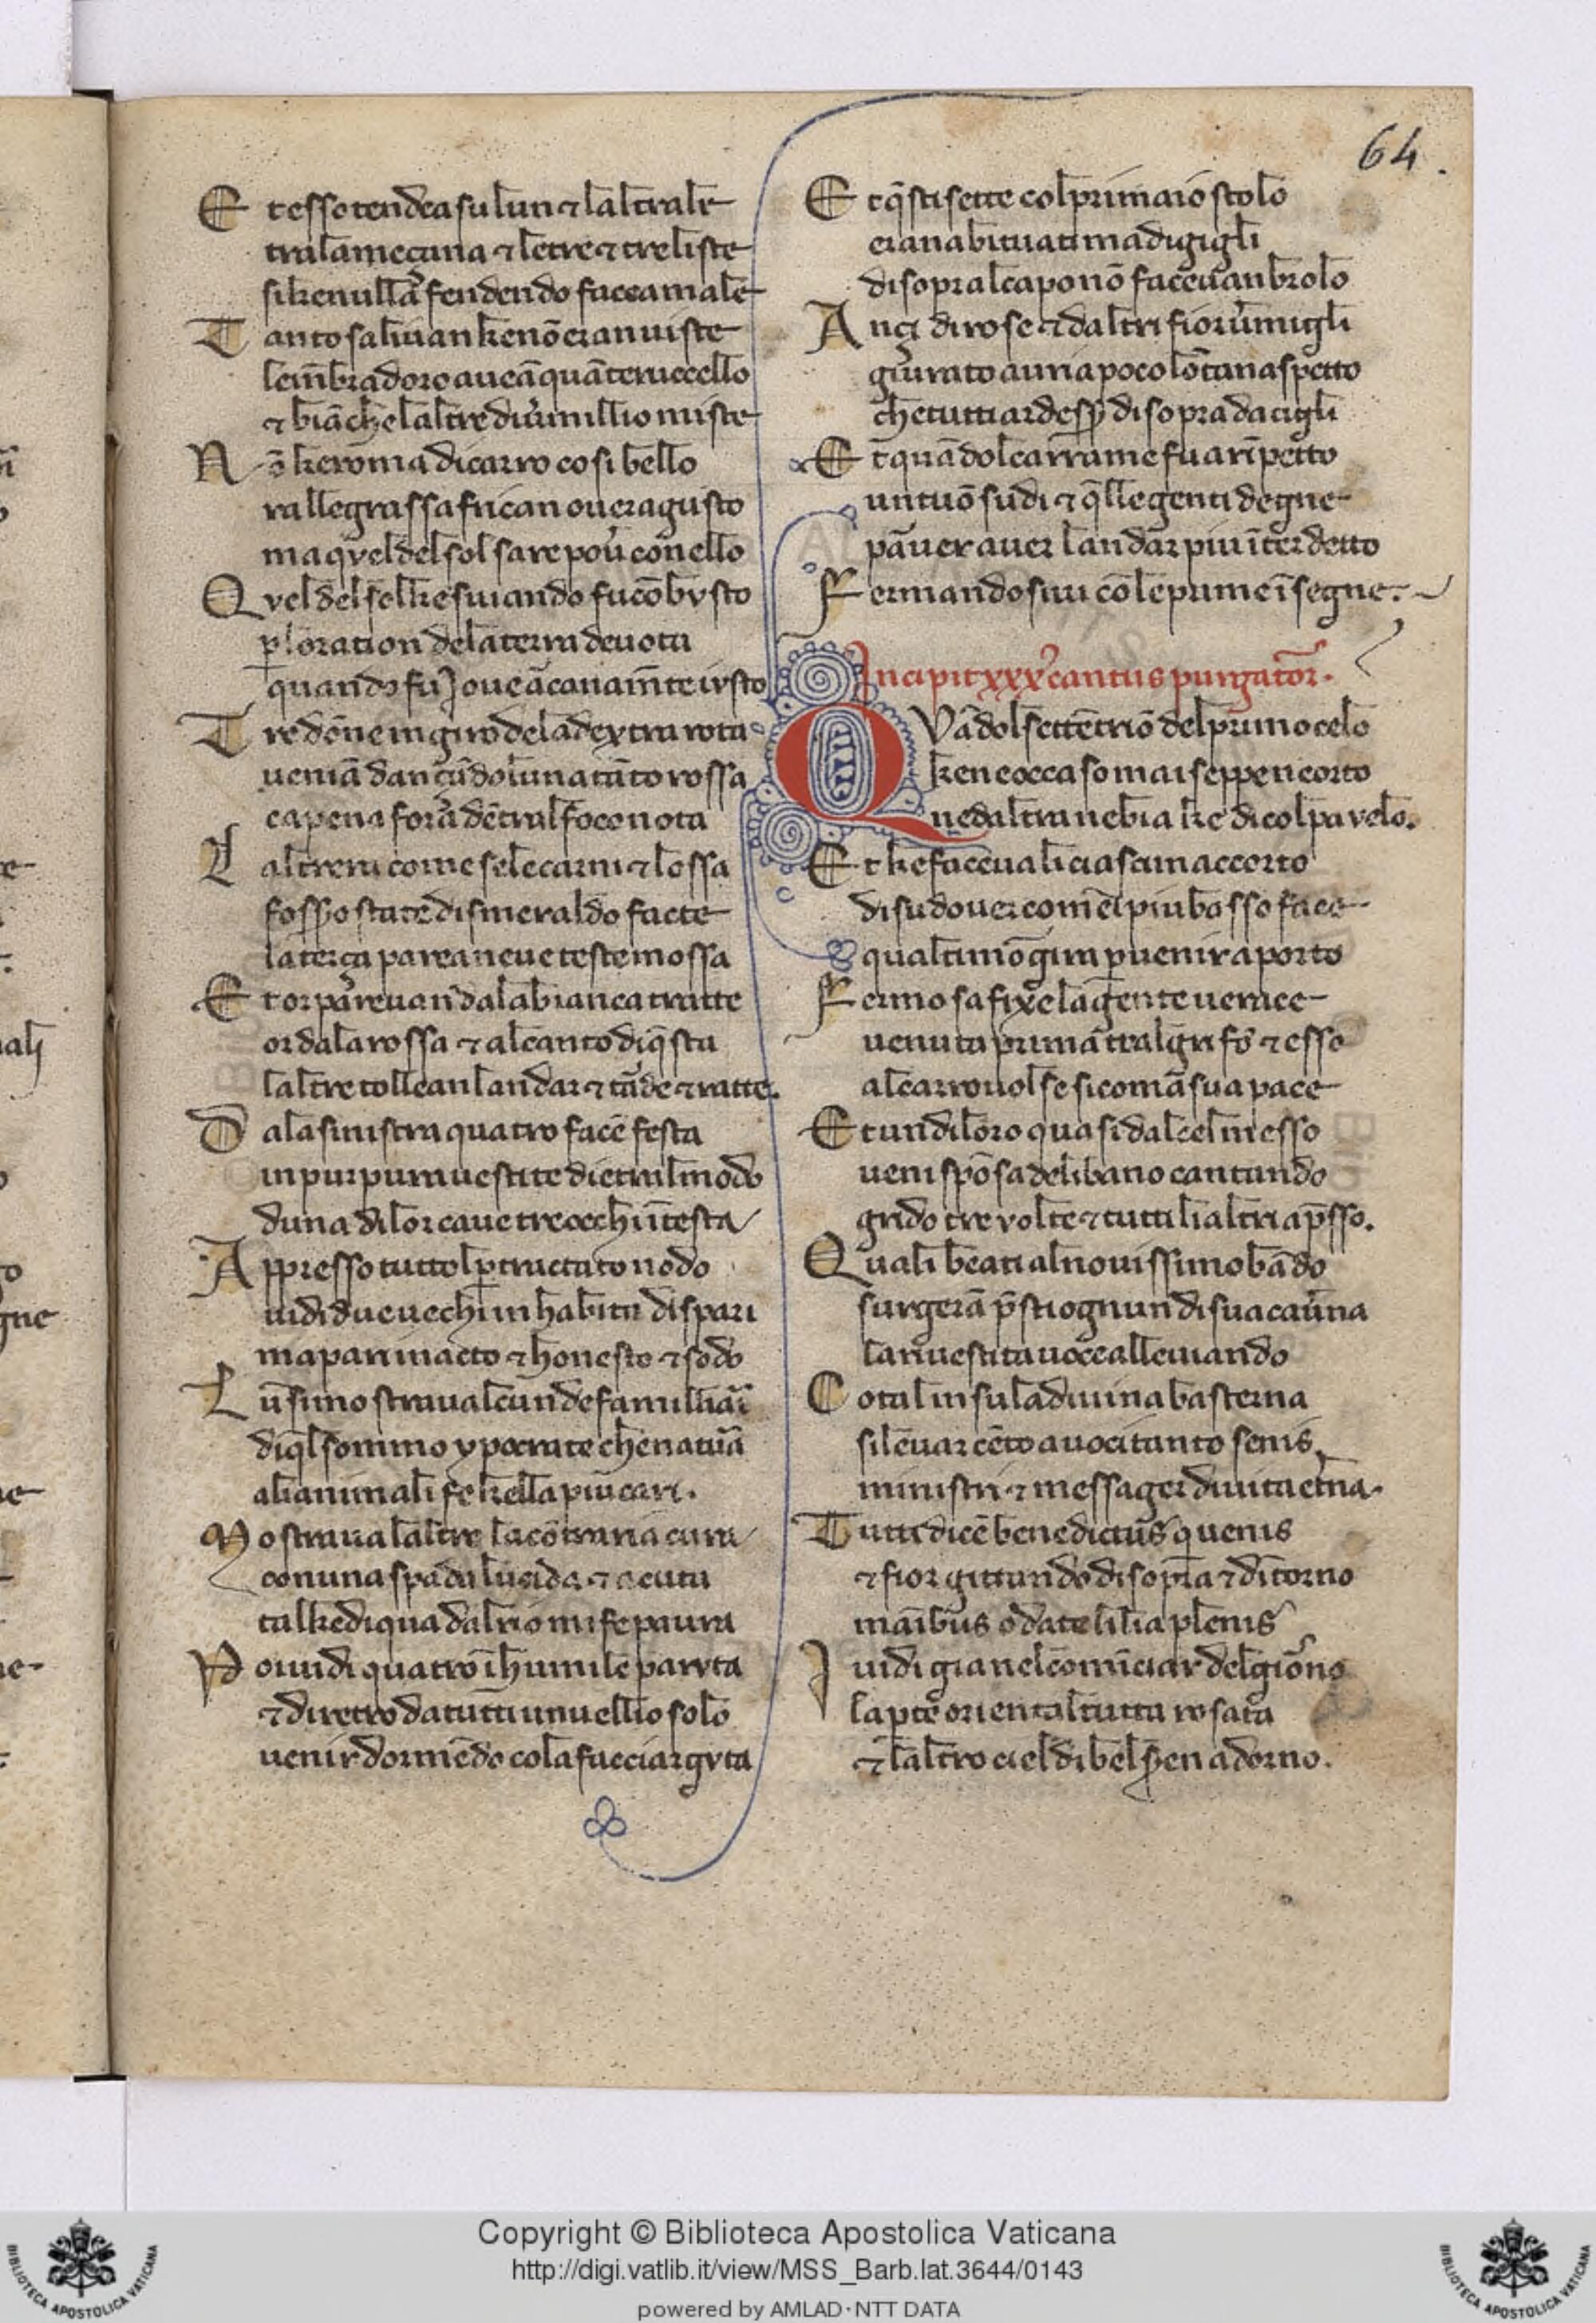 64.
E t esso tendea su lun ⁊ laltrale
tralameçana ⁊ letre ⁊ treliste
sikenulla fendendo faceamale
T anto salivan kenō eran viste
lemb̄radoro aueā quāteruccello
⁊ biāche laltre diu̾millio miste
N ō keroma dicarro cosi bello
rallegrassafricanoueragusto
maqueldelsol sarepou̾ conello
Q vel del solke suiando fucōbvsto
ꝑloration delaterra deuota
quando fu Joue ācanam̄te ivsto
T re dōne ingiro deladextra rota
veniā dançādo luna tāto rossa
capena fora dētralfoco nota
L altrera come selecarni ⁊ lossa
fosso state dismeraldo facte
laterça parea neue teste mossa
E t or pareuan dalabianca tratte
or dalarossa ⁊ alcanto diq̄sta
laltre tollean landar ⁊ tāde ⁊ ratte.
D ala sinistra quatro facē festa
in purpura uestite dietralmodo
duna dilor cauetreocchi ītesta
A ppresso tuttolꝑtractato nodo
uidi due uechi in habitu dispari
mapari inacto ⁊ honesto ⁊ sodo
L ūsi mostraualcun defamiliari
diq̄l sommo ypocrate che natura
alianimali fe kella piu cari.
M ostraua laltre lacōtraria cura
conuna spada lucida ⁊ acuta
talkediqua dalrio mi fe paura
P oi uidi quatro ī humile parvta
⁊ diretro datutti unuellio solo
uenir dormēdo cola facciargvta
E t q̄sti sette col primaio stolo
eran abituati ma di gigli
disopralcapo nō faceuan brolo
A nçi di rose ⁊ daltri fior ūmigli
giurato auria poco lōtan aspetto
che tutti ardess̄ disopra dacigli
E t quādolcarrame fu arīpetto
untuō sudi ⁊ q̄lle genti degne
pāuer auer landar piu īterdetto
F ermandosiui cōleprime īsegne.
Incipit xxx cantus purgator̄.
Q Vādolsettētriō delprimo celo
ke neoccaso mai seppe neorto
nedaltra nebia ke dicolpa velo.
E t ke faceua li ciascun accorto
disu douer comēl piu basso face
qual timō gira ꝑ uenir aporto
F ermo safixe lagente uerace
uenuta prima tralgrifō ⁊ esso
alcarro uolse si comā sua pace
E t un diloro quasi dalcel messo
ueni spōsa delibano cantando
grido tre volte ⁊ tutti li altri ap̄sso.
Q uali beati alnouissimo bādo
surgerā p̄sti ognun di sua cau̾na
lariuestita uoce alleuiando
C otali insuladiuina basterna
si leuar cēto a uoci tanto senis
ministri ⁊ messager diuita etna.
T utti dicē benedictus q̄ uenis
⁊ fior gittando di sopra ⁊ dītorno
manibus o date lilia plenis
I uidi gia nel comīciar del giorno
lapte oriental tutta rosata
⁊ laltro ciel di bel seren adorno.
Copyright © Biblioteca Apostolica Vaticana
http://digi.vatlib.it/view/MSS_Barb.lat.3644/0143
powered by AMLAD·NTT DATA
BIBLIOTECA APOSTOLICA VATICANA
BIBLIOTECA APOSTOLICA VATICANA